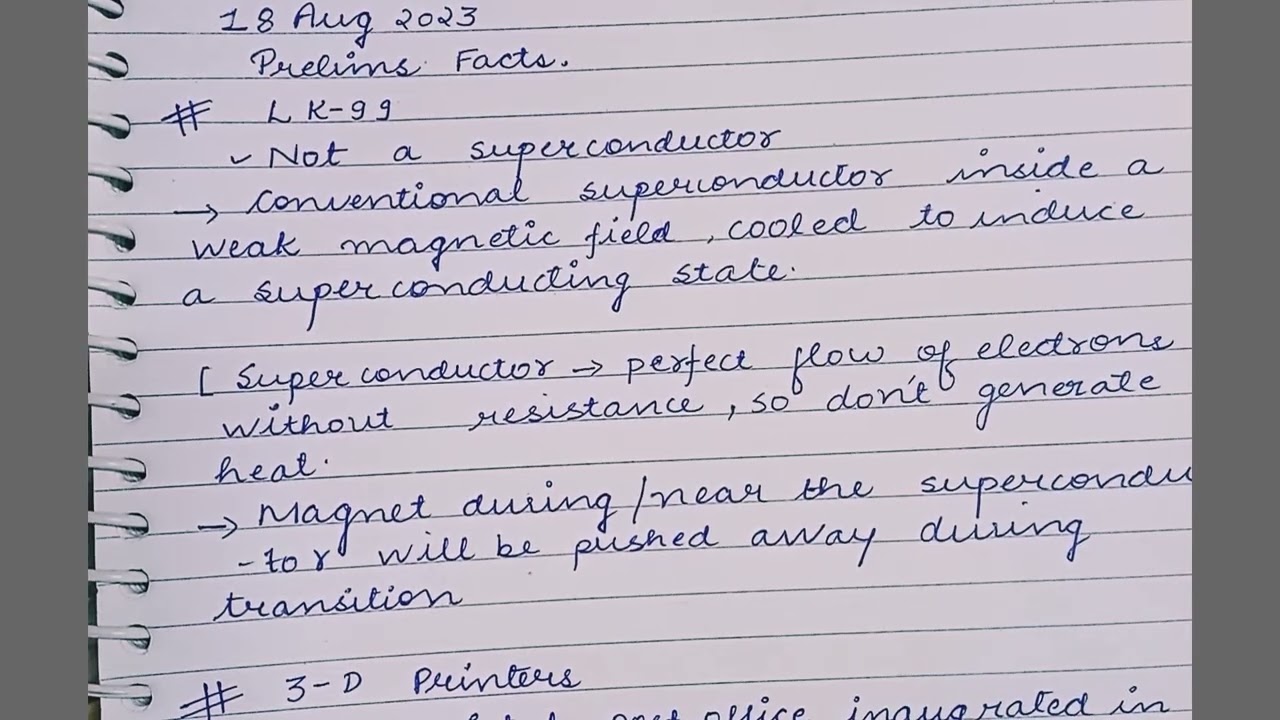 18 Aug 2023
Prelims Facts.
# LK-99
✓ Not a superconductor
→ Conventional superconductor inside a
weak magnetic field, cooled to induce
a superconducting state.
[ Superconductor → perfect flow of electrons
without resistance, so don't generate
heat.
→ Magnet during/near the supercondu
-tor will be pushed away during
transition
# 3-D Printers
office inaugurated in